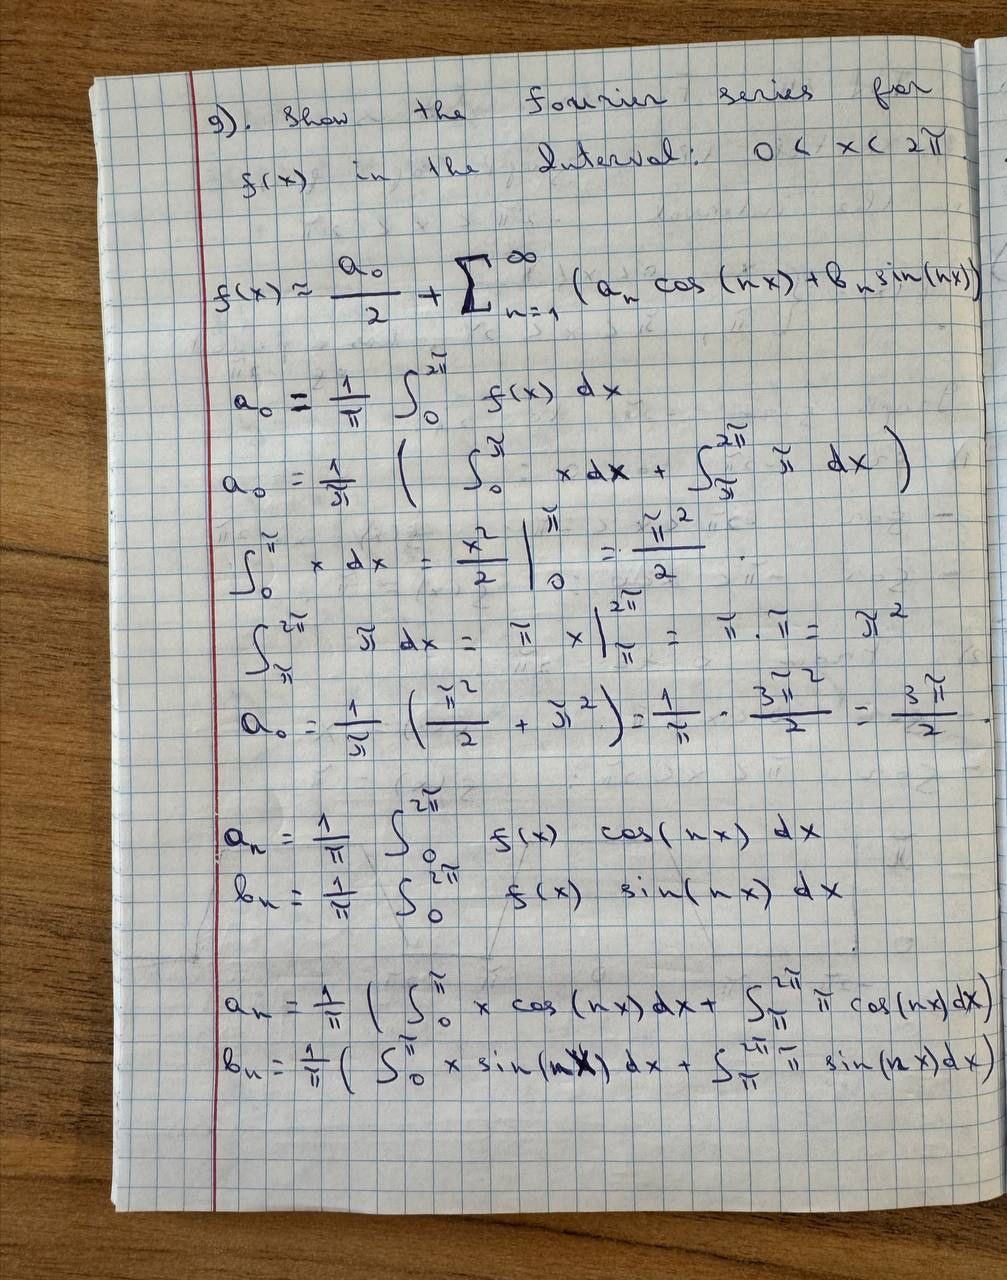 g). Show the fourier series for
f(x) in the Interval: 0 < x < 2π
f(x) ≈ a₀/2 + ∑ₙ₌₁^∞ (aₙ cos (nx) + bₙ sin(nx))
a₀ = 1/π ∫₀^2π f(x) dx
a₀ = 1/π ( ∫₀^π x dx + ∫_π^2π π dx )
∫₀^π x dx = x²/2 |₀^π = π²/2 .
∫_π^2π π dx = π x|_π^2π = π . π = π²
a₀ = 1/π (π²/2 + π²) = 1/π · 3π²/2 = 3π/2 .
aₙ = 1/π ∫₀^2π f(x) cos(nx) dx
bₙ = 1/π ∫₀^2π f(x) sin(nx) dx
aₙ = 1/π ( ∫₀^π x cos (nx) dx + ∫_π^2π π cos(nx) dx)
bₙ = 1/π ( ∫₀^π x sin(nx) dx + ∫_π^2π π sin(nx) dx)